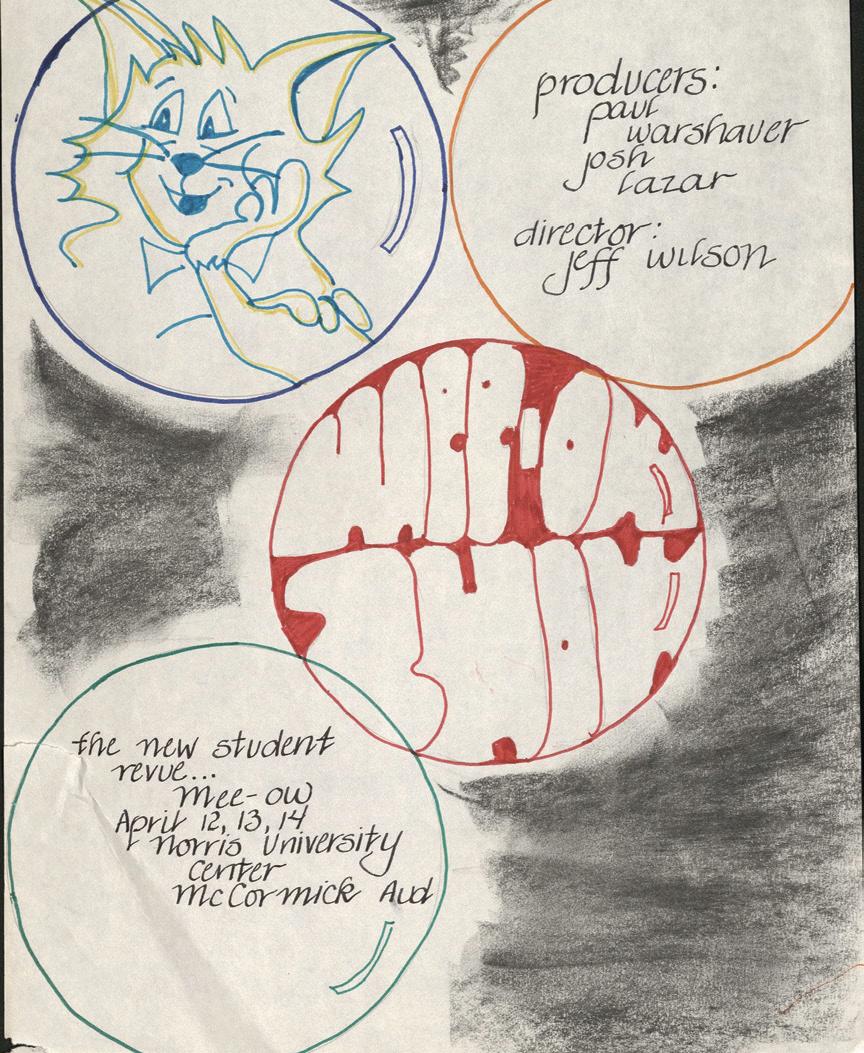 producers:
paul
warshauer
josh
lazar
director:
jeff wilson
MEE-OW
SHOW
the new student
revue...
mee-ow
April 12, 13, 14
Norris University
Center
McCormick Aud